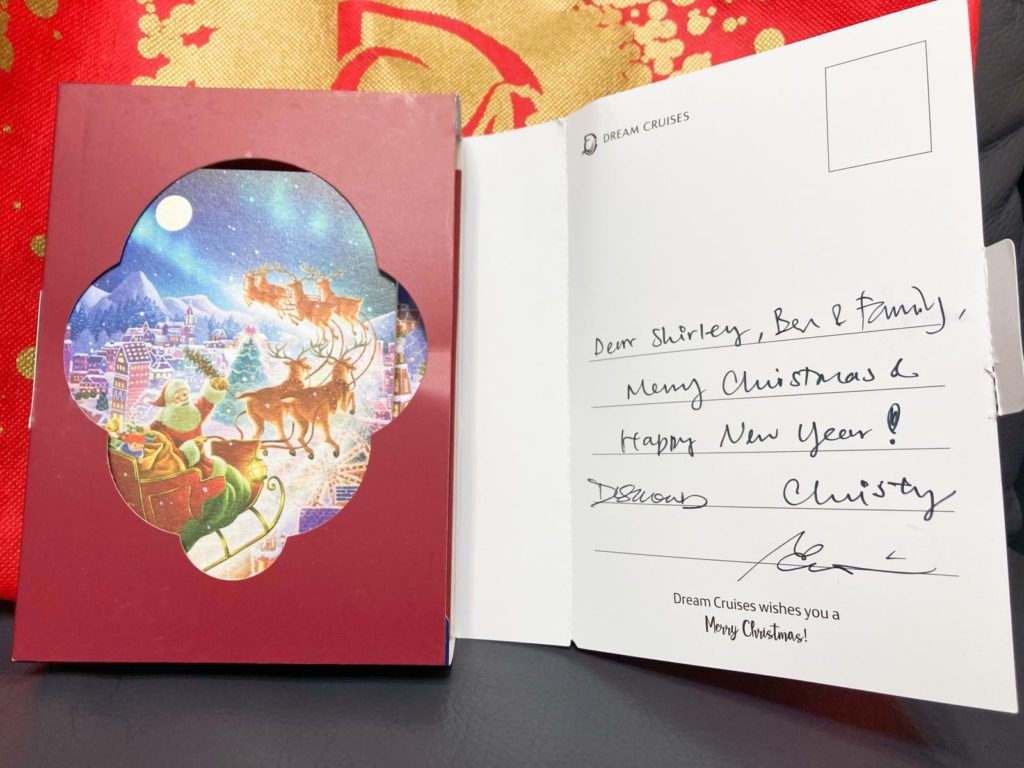 DREAM CRUISES
Dear Shirley, Ben & Family,
Merry Christmas &
Happy New Year!
Desmond Christy
Dream Cruises wishes you a
Merry Christmas!